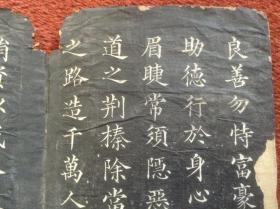 良善勿恃富豪
助德行於身心
眉睫常須隱惡
道之荆榛除當
之路造千萬人